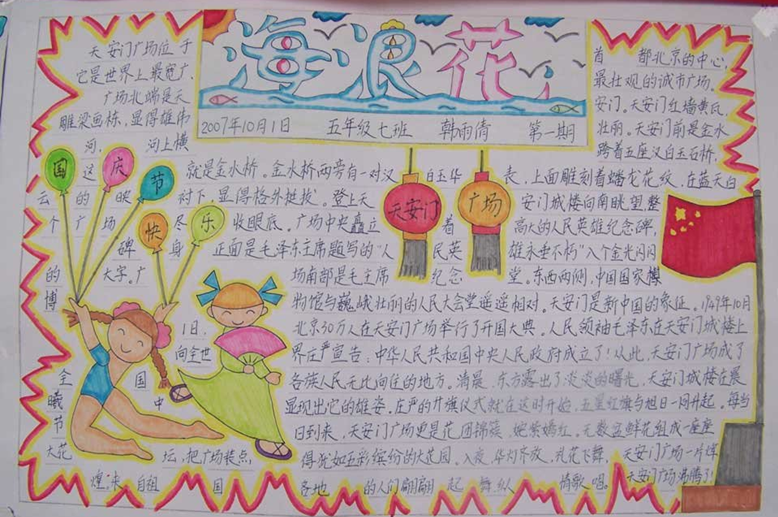 海浪花
2007年10月1日 五年级七班 韩雨倩 第一期
天安门广场位于首都北京的中心,
它是世界上最宽广、最壮观的诚市广场。
广场北端是天安门。天安门红墙黄瓦,
雕梁画栋,显得雄伟壮丽。天安门前是金水
河,河上横跨着五座汉白玉石桥,
这就是金水桥。金水桥两旁有一对汉白玉华表,上面雕刻着蟠龙花纹,在蓝天白
云的映衬下,显得格外挺拔。登上天安门城楼向南眺望整
个广场尽收眼底。广场中央矗立着高大的人民英雄纪念碑,
碑身正面是毛泽东主席题写的“人民英雄永垂不朽”八个金光闪闪
的大字。广场南部是毛主席纪念堂。东西两侧,中国国家博
博物馆与巍峨壮丽的人民大会堂遥遥相对。天安门是新中国的象征。1949年10月
1日,北京30万人在天安门广场举行了开国大典。人民领袖毛泽东在天安门城楼上
向全世界庄严宣告:中华人民共和国中央人民政府成立了!从此,天安门广场成了
全国各族人民无比向往的地方。清晨,东方露出了淡淡的曙光,天安门城楼在晨
曦中显现出它的雄姿。庄严的升旗仪式就在这时开始,五星红旗与旭日一同升起。每当
节日到来,天安门广场更是花团锦簇,姹紫嫣红。无数盆鲜花组成一座座
大花坛,把广场装点得犹如五彩缤纷的大花园。入夜,华灯齐放,礼花飞舞,天安门广场一片辉
煌,来自祖国各地的人们翩翩起舞,纵情歌唱。天安门广场沸腾了!
国庆节
快乐
天安门
广场